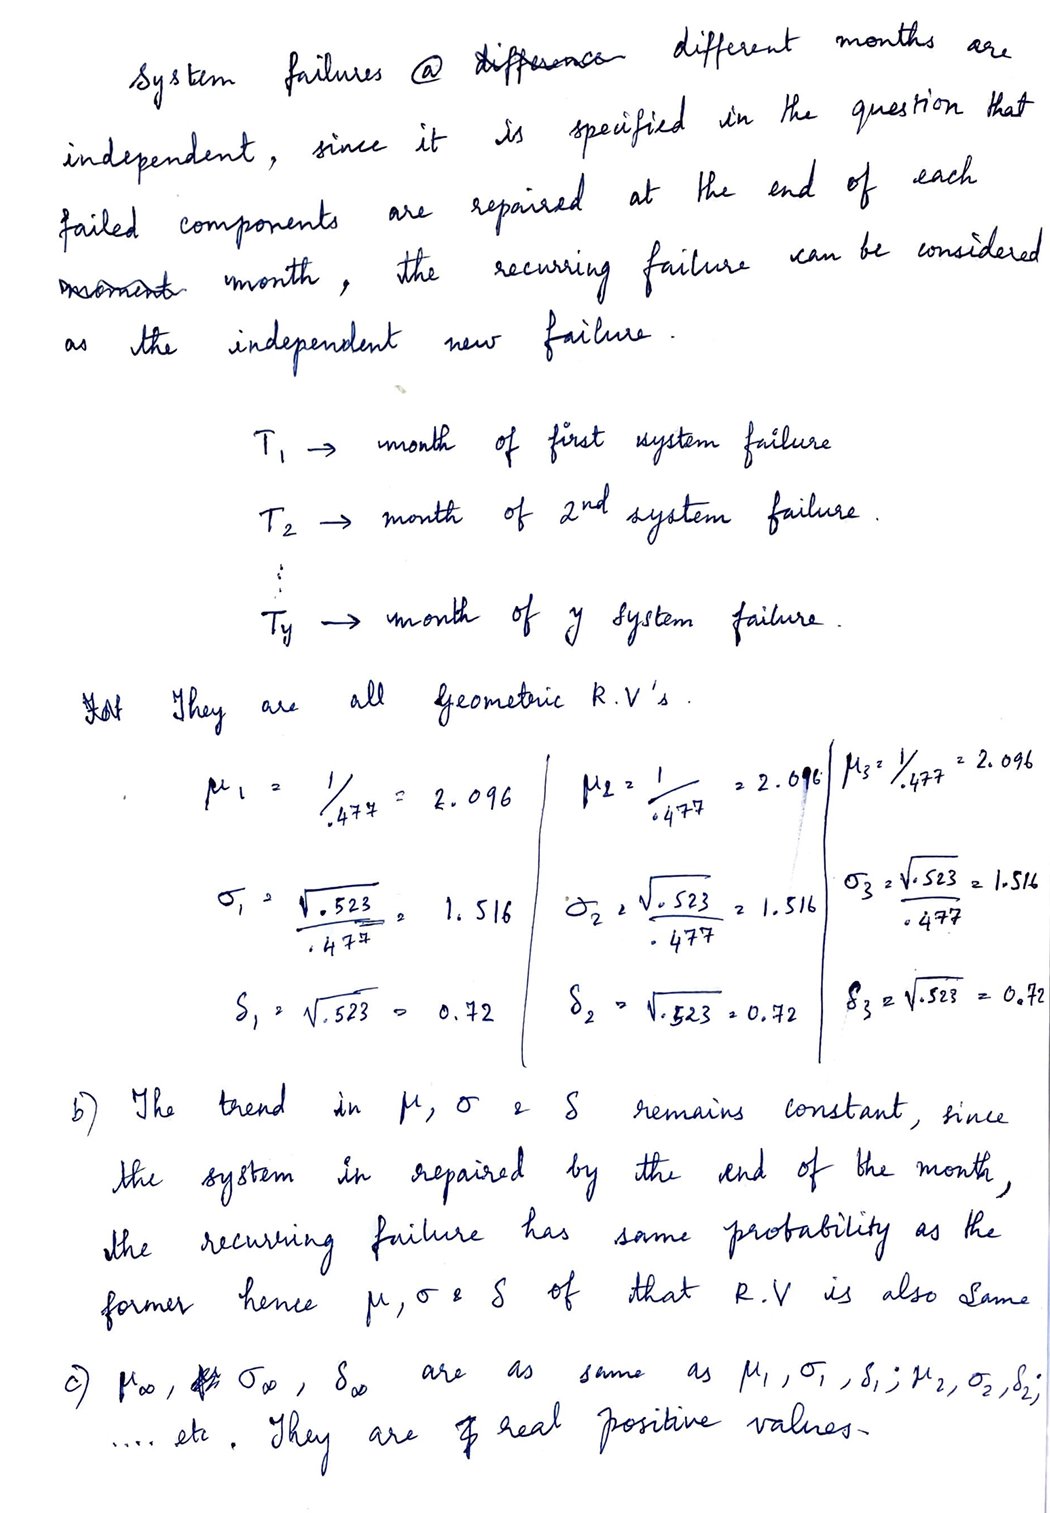 System failures @ difference different months are
independent, since it is specified in the question that
failed components are repaired at the end of each
moment month, the recurring failure can be considered
as the independent new failure.
T1 → month of first system failure
T2 → month of 2nd system failure.
⋮
Ty → month of y system failure.
They are all Geometric R.V's.
μ1 = 1/.477 = 2.096 | μ2 = 1/.477 = 2.096 | μ3 = 1/.477 = 2.096
σ1 = √.523/.477 = 1.516 | σ2 = √.523/.477 = 1.516 | σ3 = √.523/.477 = 1.516
δ1 = √.523 = 0.72 | δ2 = √.523 = 0.72 | δ3 = √.523 = 0.72
b) The trend in μ, σ & δ remains constant, since
the system in repaired by the end of the month,
the recurring failure has same probability as the
former hence μ, σ & δ of that R.V is also same
c) μ∞, σ∞, δ∞ are as same as μ1, σ1, δ1; μ2, σ2, δ2;
.... etc. They are real positive values.